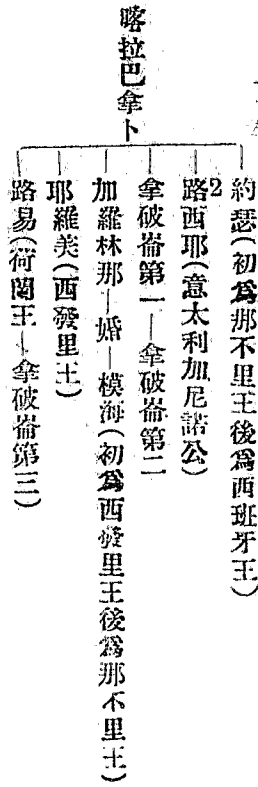 喀拉巴拿卜
約瑟(初爲那不里王後爲西班牙王)
2
路西耶(意太利加尼諾公)
拿破崙第一—拿破崙第二
加羅林那—婚—模海(初爲西發里王後爲那不里王)
耶羅美(西發里王)
路易(荷蘭王—拿破崙第三)